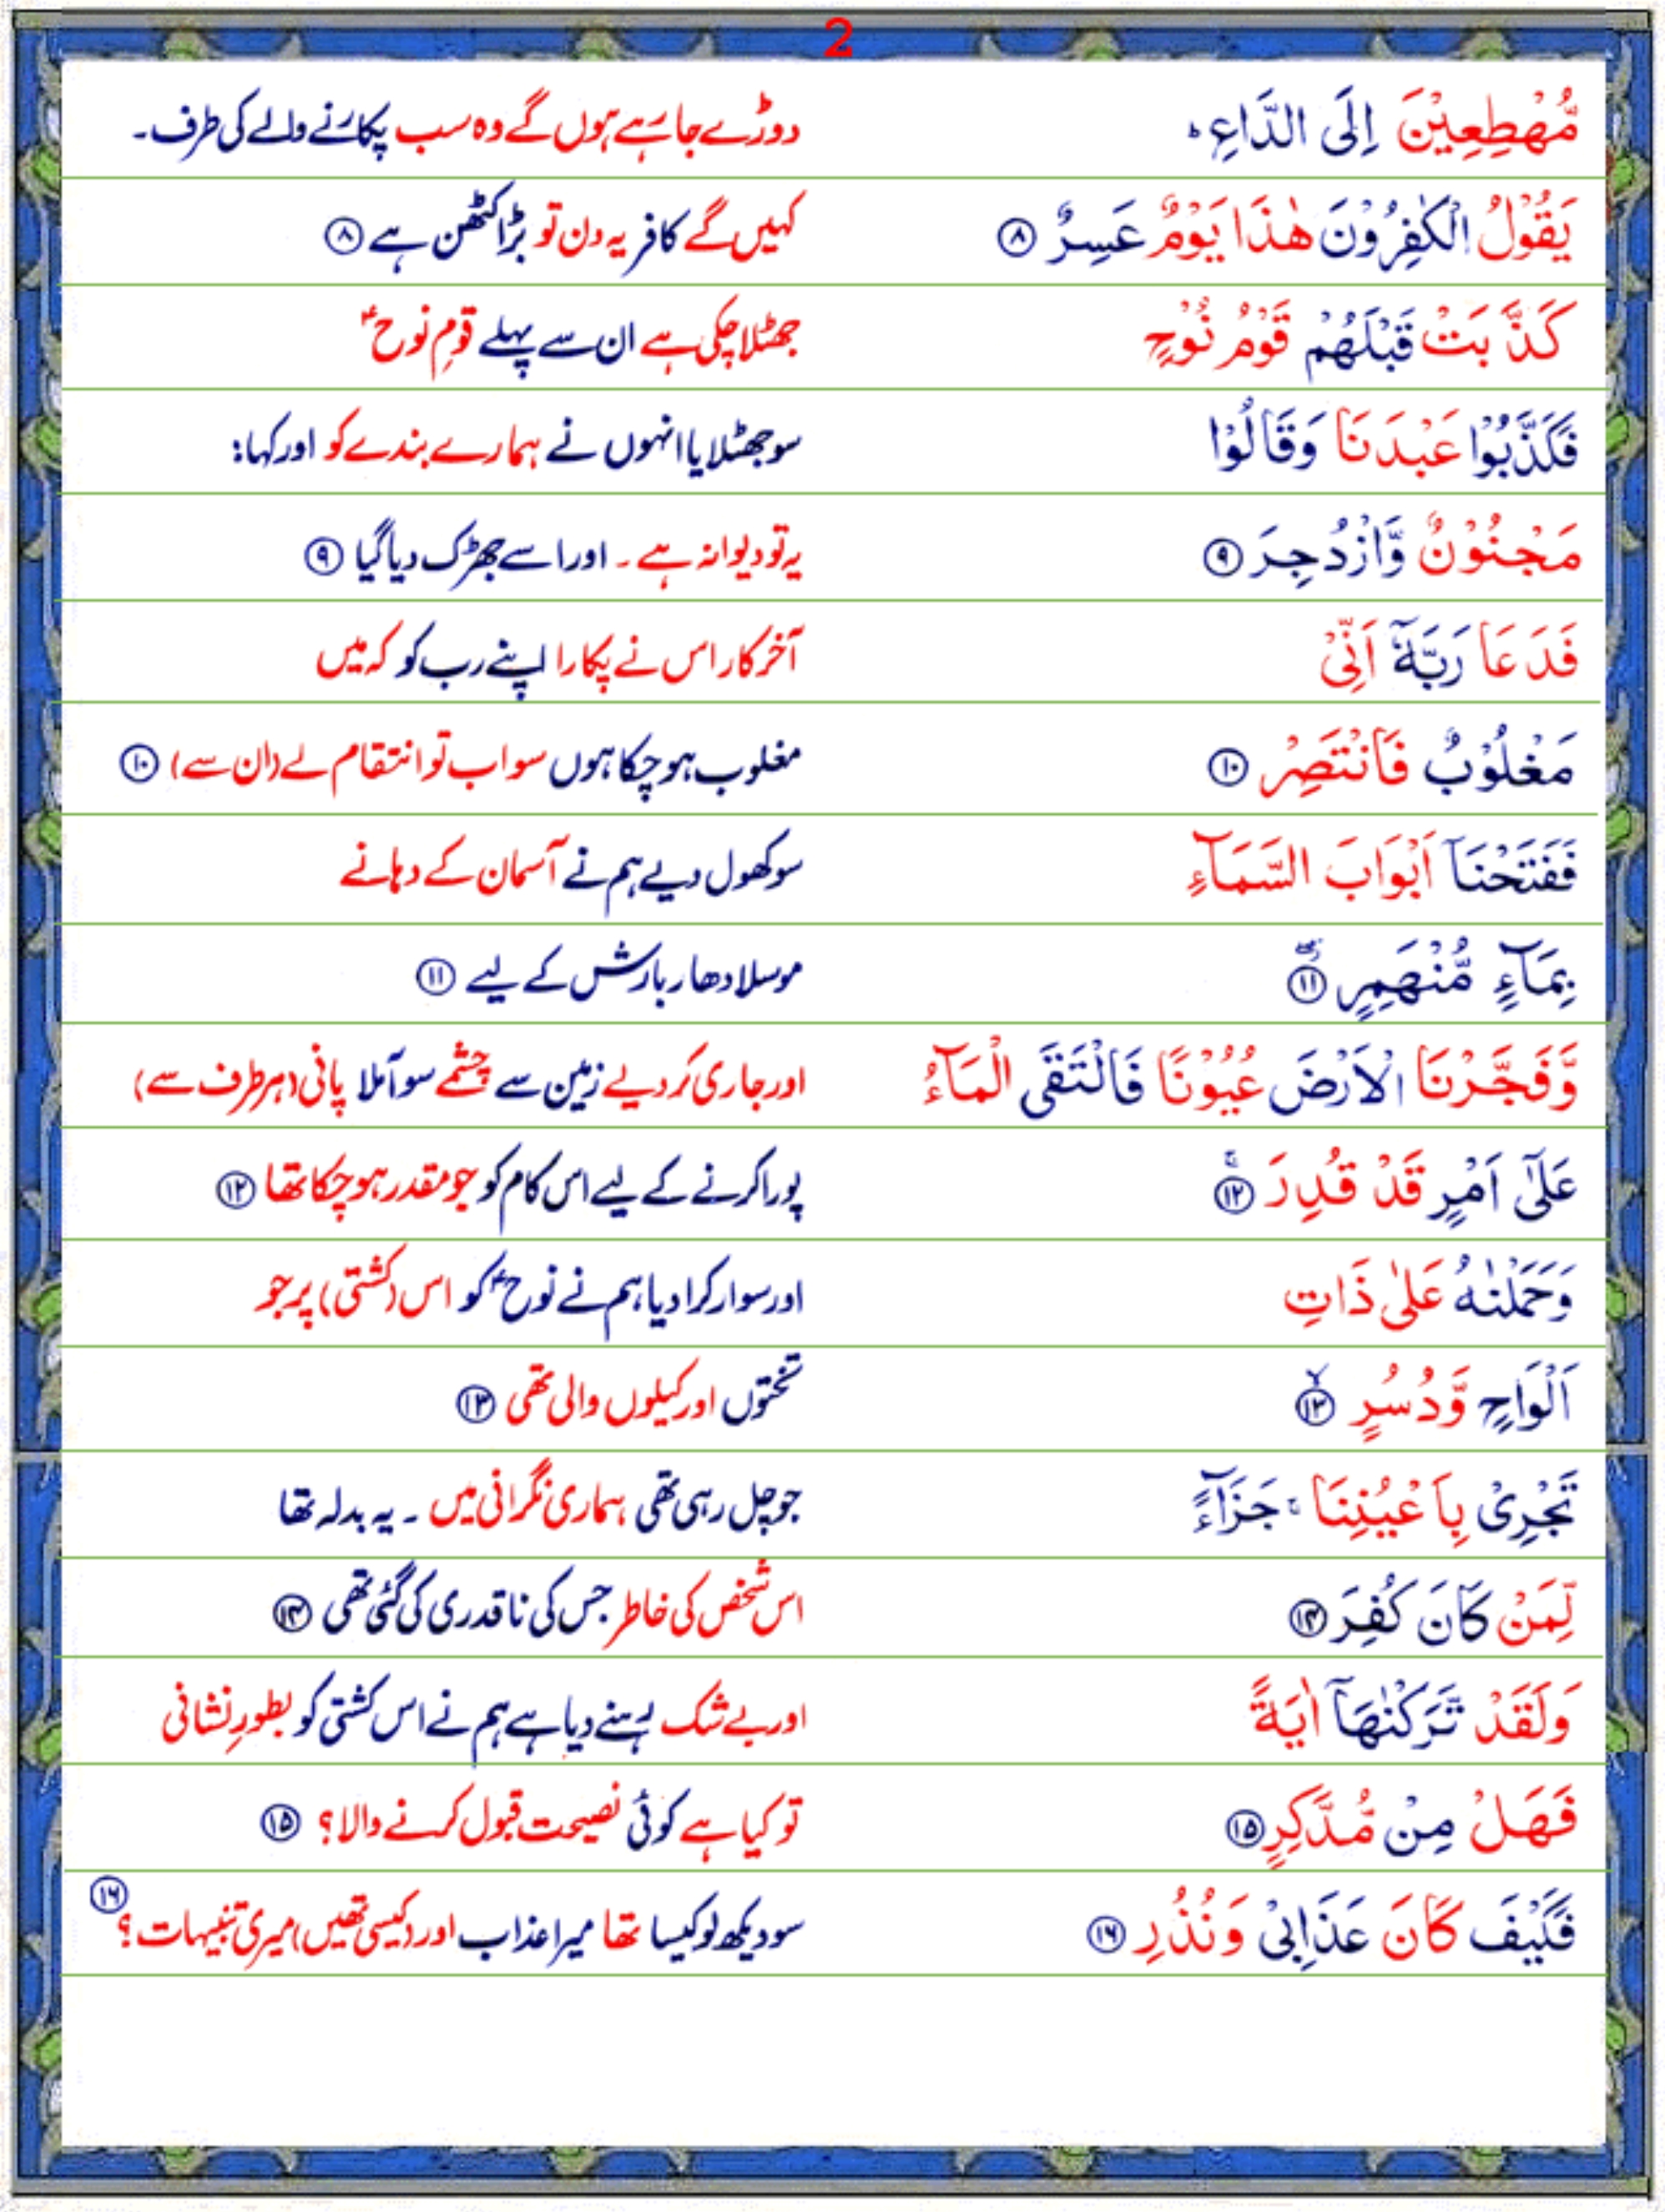 2
مُّهْطِعِيْنَ اِلَى الدَّاعِ ؕ دوڑے جارہے ہوں گے وہ سب پکارنے والے کی طرف۔
يَقُوْلُ الْكٰفِرُوْنَ هٰذَا يَوْمٌ عَسِرٌ ۸ کہیں گے کافر یہ دن تو بڑا کٹھن ہے ۸
كَذَّبَتْ قَبْلَهُمْ قَوْمُ نُوْحٍ جھٹلا چکی ہے ان سے پہلے قومِ نوحؑ
فَكَذَّبُوْا عَبْدَنَا وَقَالُوْا سو جھٹلایا انہوں نے ہمارے بندے کو اور کہا:
مَجْنُوْنٌ وَّازْدُجِرَ ۹ یہ تو دیوانہ ہے ۔ اور اسے جھڑک دیا گیا ۹
فَدَعَا رَبَّهٗۤ اَنِّىْ آخرکار اس نے پکارا اپنے رب کو کہ میں
مَغْلُوْبٌ فَانْتَصِرْ ۱۰ مغلوب ہوچکا ہوں سو اب تو انتقام لے (ان سے) ۱۰
فَفَتَحْنَاۤ اَبْوَابَ السَّمَآءِ سو کھول دیے ہم نے آسمان کے دہانے
بِمَآءٍ مُّنْهَمِرٍ ۱۱ موسلا دھار بارش کے لیے ۱۱
وَّفَجَّرْنَا الْاَرْضَ عُيُوْنًا فَالْتَقَى الْمَآءُ اور جاری کردیے زمین سے چشمے سو آملا پانی (ہر طرف سے)
عَلٰٓى اَمْرٍ قَدْ قُدِرَ ۱۲ پورا کرنے کے لیے اس کام کو جو مقدر ہوچکا تھا ۱۲
وَحَمَلْنٰهُ عَلٰى ذَاتِ اور سوار کرا دیا ہم نے نوحؑ کو اس (کشتی) پر جو
اَلْوَاحٍ وَّدُسُرٍ ۱۳ تختوں اور کیلوں والی تھی ۱۳
تَجْرِىْ بِاَعْيُنِنَا ۚ جَزَآءً جو چل رہی تھی ہماری نگرانی میں ۔ یہ بدلہ تھا
لِّمَنْ كَانَ كُفِرَ ۱۴ اس شخص کی خاطر جس کی ناقدری کی گئی تھی ۱۴
وَلَقَدْ تَّرَكْنٰهَاۤ اٰيَةً اور بے شک رہنے دیا ہے ہم نے اس کشتی کو بطورِ نشانی
فَهَلْ مِنْ مُّدَّكِرٍ ۱۵ تو کیا ہے کوئی نصیحت قبول کرنے والا؟ ۱۵
فَكَيْفَ كَانَ عَذَابِىْ وَنُذُرِ ۱۶ سو دیکھ لو کیسا تھا میرا عذاب اور (کیسی تھیں) میری تنبیہات؟ ۱۶